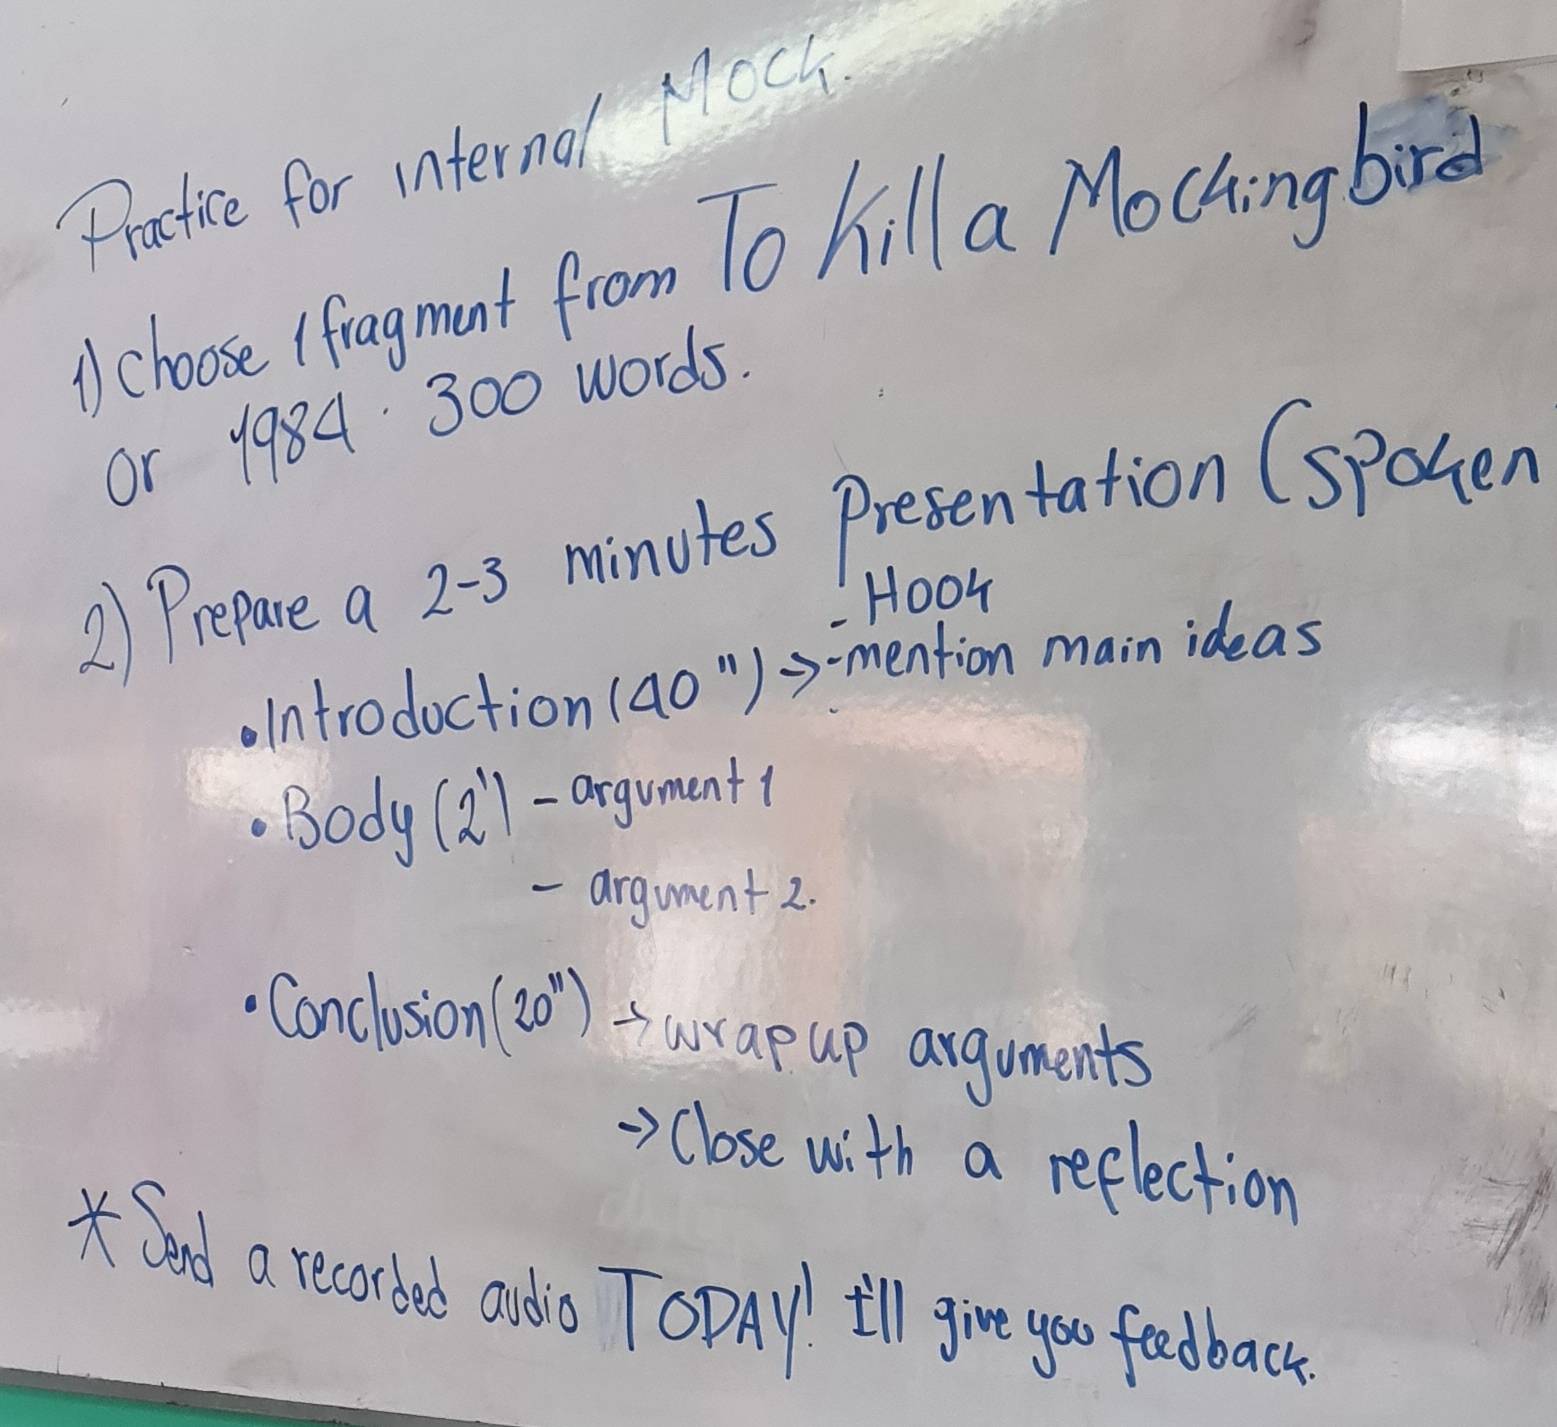 Practice for internal Mock.
1) Choose 1 fragment from To Kill a Mockingbird
or 1984. 300 words.
2) Prepare a 2-3 minutes Presentation (spoken
- Hook
• Introduction (40") → - mention main ideas
• Body (2') - argument 1
- argument 2.
• Conclusion (20") → wrap up arguments
→ Close with a reflection
* Send a recorded audio TODAY! I'll give you feedback.